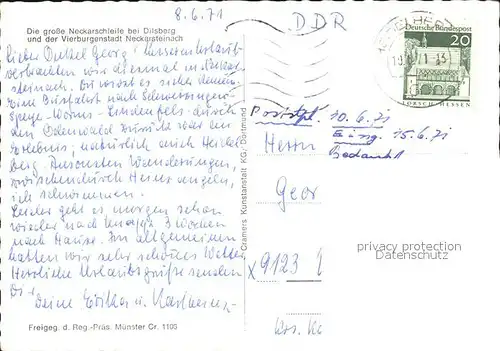 8.6.71
DDR
Die große Neckarschleife bei Dilsberg
und der Vierburgenstadt Neckarsteinach
Lieber Onkel Georg! Unseren Urlaub
verbrachten wir diesmal in Neckar-
steinach. Du warst es sicher kennen.
Eine Busfahrt nach Schwetzingen-
Speyer-Worms-Lindenfels-durch
den Odenwald zurück war ein
Erlebnis, natürlich auch Heidel-
berg. Ansonsten Wanderungen,
zwischendurch Heinz angeln,
ich schwimmen.
Leider geht es morgen schon
wieder nach 3 Wochen
nach Hause. Im allgemeinen
hatten wir sehr schönes Wetter
Herzliche Urlaubsgrüße senden
Dir
Deine Erika u. Karlheinz
Freigeg. d. Reg.-Präs. Münster Cr. 1105
Cramers Kunstanstalt KG, Dortmund
Deutsche Bundespost
20
LORSCH HESSEN
Poststpl. 10.6.71
Eing. 15.6.71
Bedankt
Herrn
Geor
privacy protection
Datenschutz
x9123
Krs.